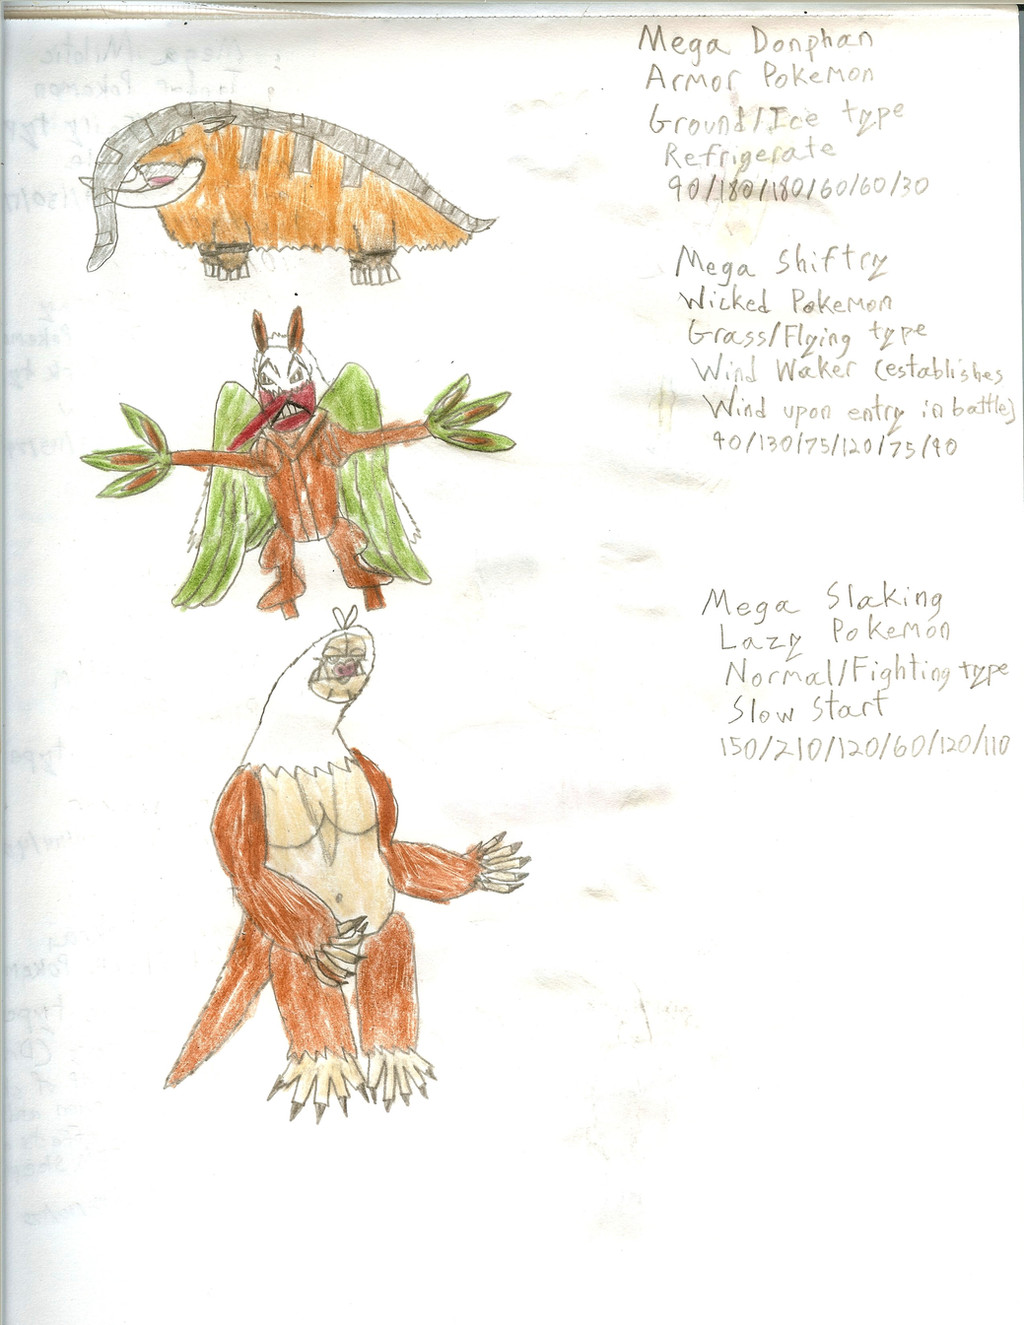 Mega Donphan
Armor Pokemon
Ground/Ice type
Refrigerate
90/180/180/60/60/30
Mega Shiftry
Wicked Pokemon
Grass/Flying type
Wind Waker (establishes
Wind upon entry in battle)
90/130/75/120/75/90
Mega Slaking
Lazy Pokemon
Normal/Fighting type
Slow Start
150/210/120/60/120/110